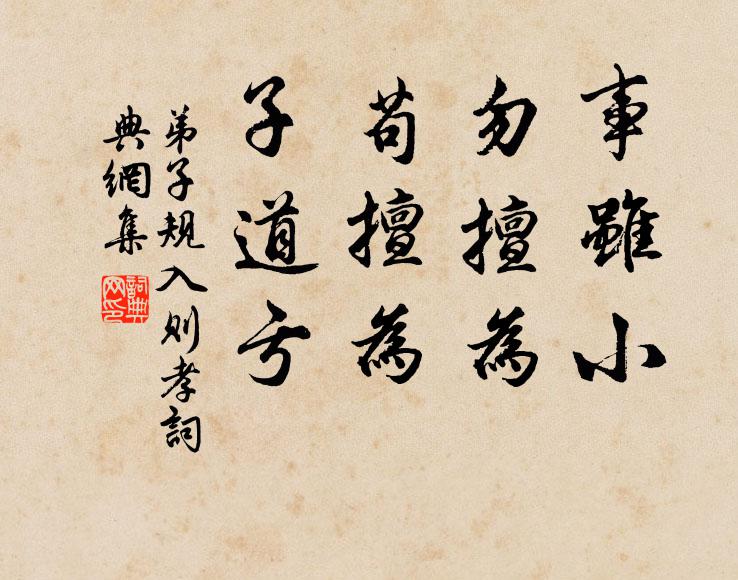 事雖小
勿擅為
苟擅為
子道亏
弟子規入则孝詞
典網集
詞典
网印